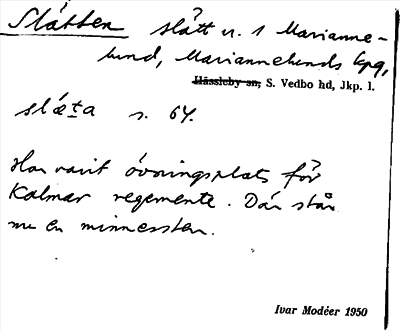 Slätten slätt n. 1 Marianne-
lund, Mariannelunds kpg,
Hässleby sn, S. Vedbo hd, Jkp. l.
slæta s. 64.
Har varit övningsplats för
Kalmar regemente. Där står
nu en minnessten.
Ivar Modéer 1950